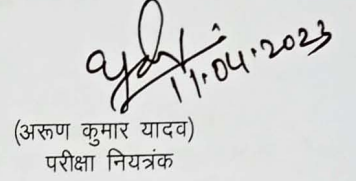 11.04.2023
(अरूण कुमार यादव)
परीक्षा नियत्रंक